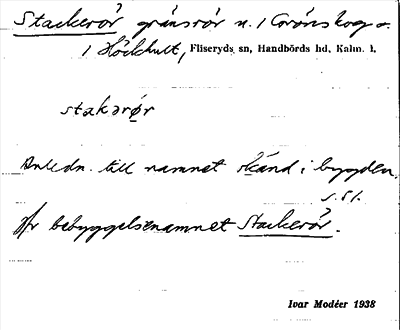 Stackerör gränsrör n. / Grönskog o.
/ Höckhult, Fliseryds sn, Handbörds hd, Kalm. l.
stakərør
Anledn. till namnet okänd i bygden.
s. 51.
Jfr bebyggelsenamnet Stackerör.
Ivar Modéer 1938